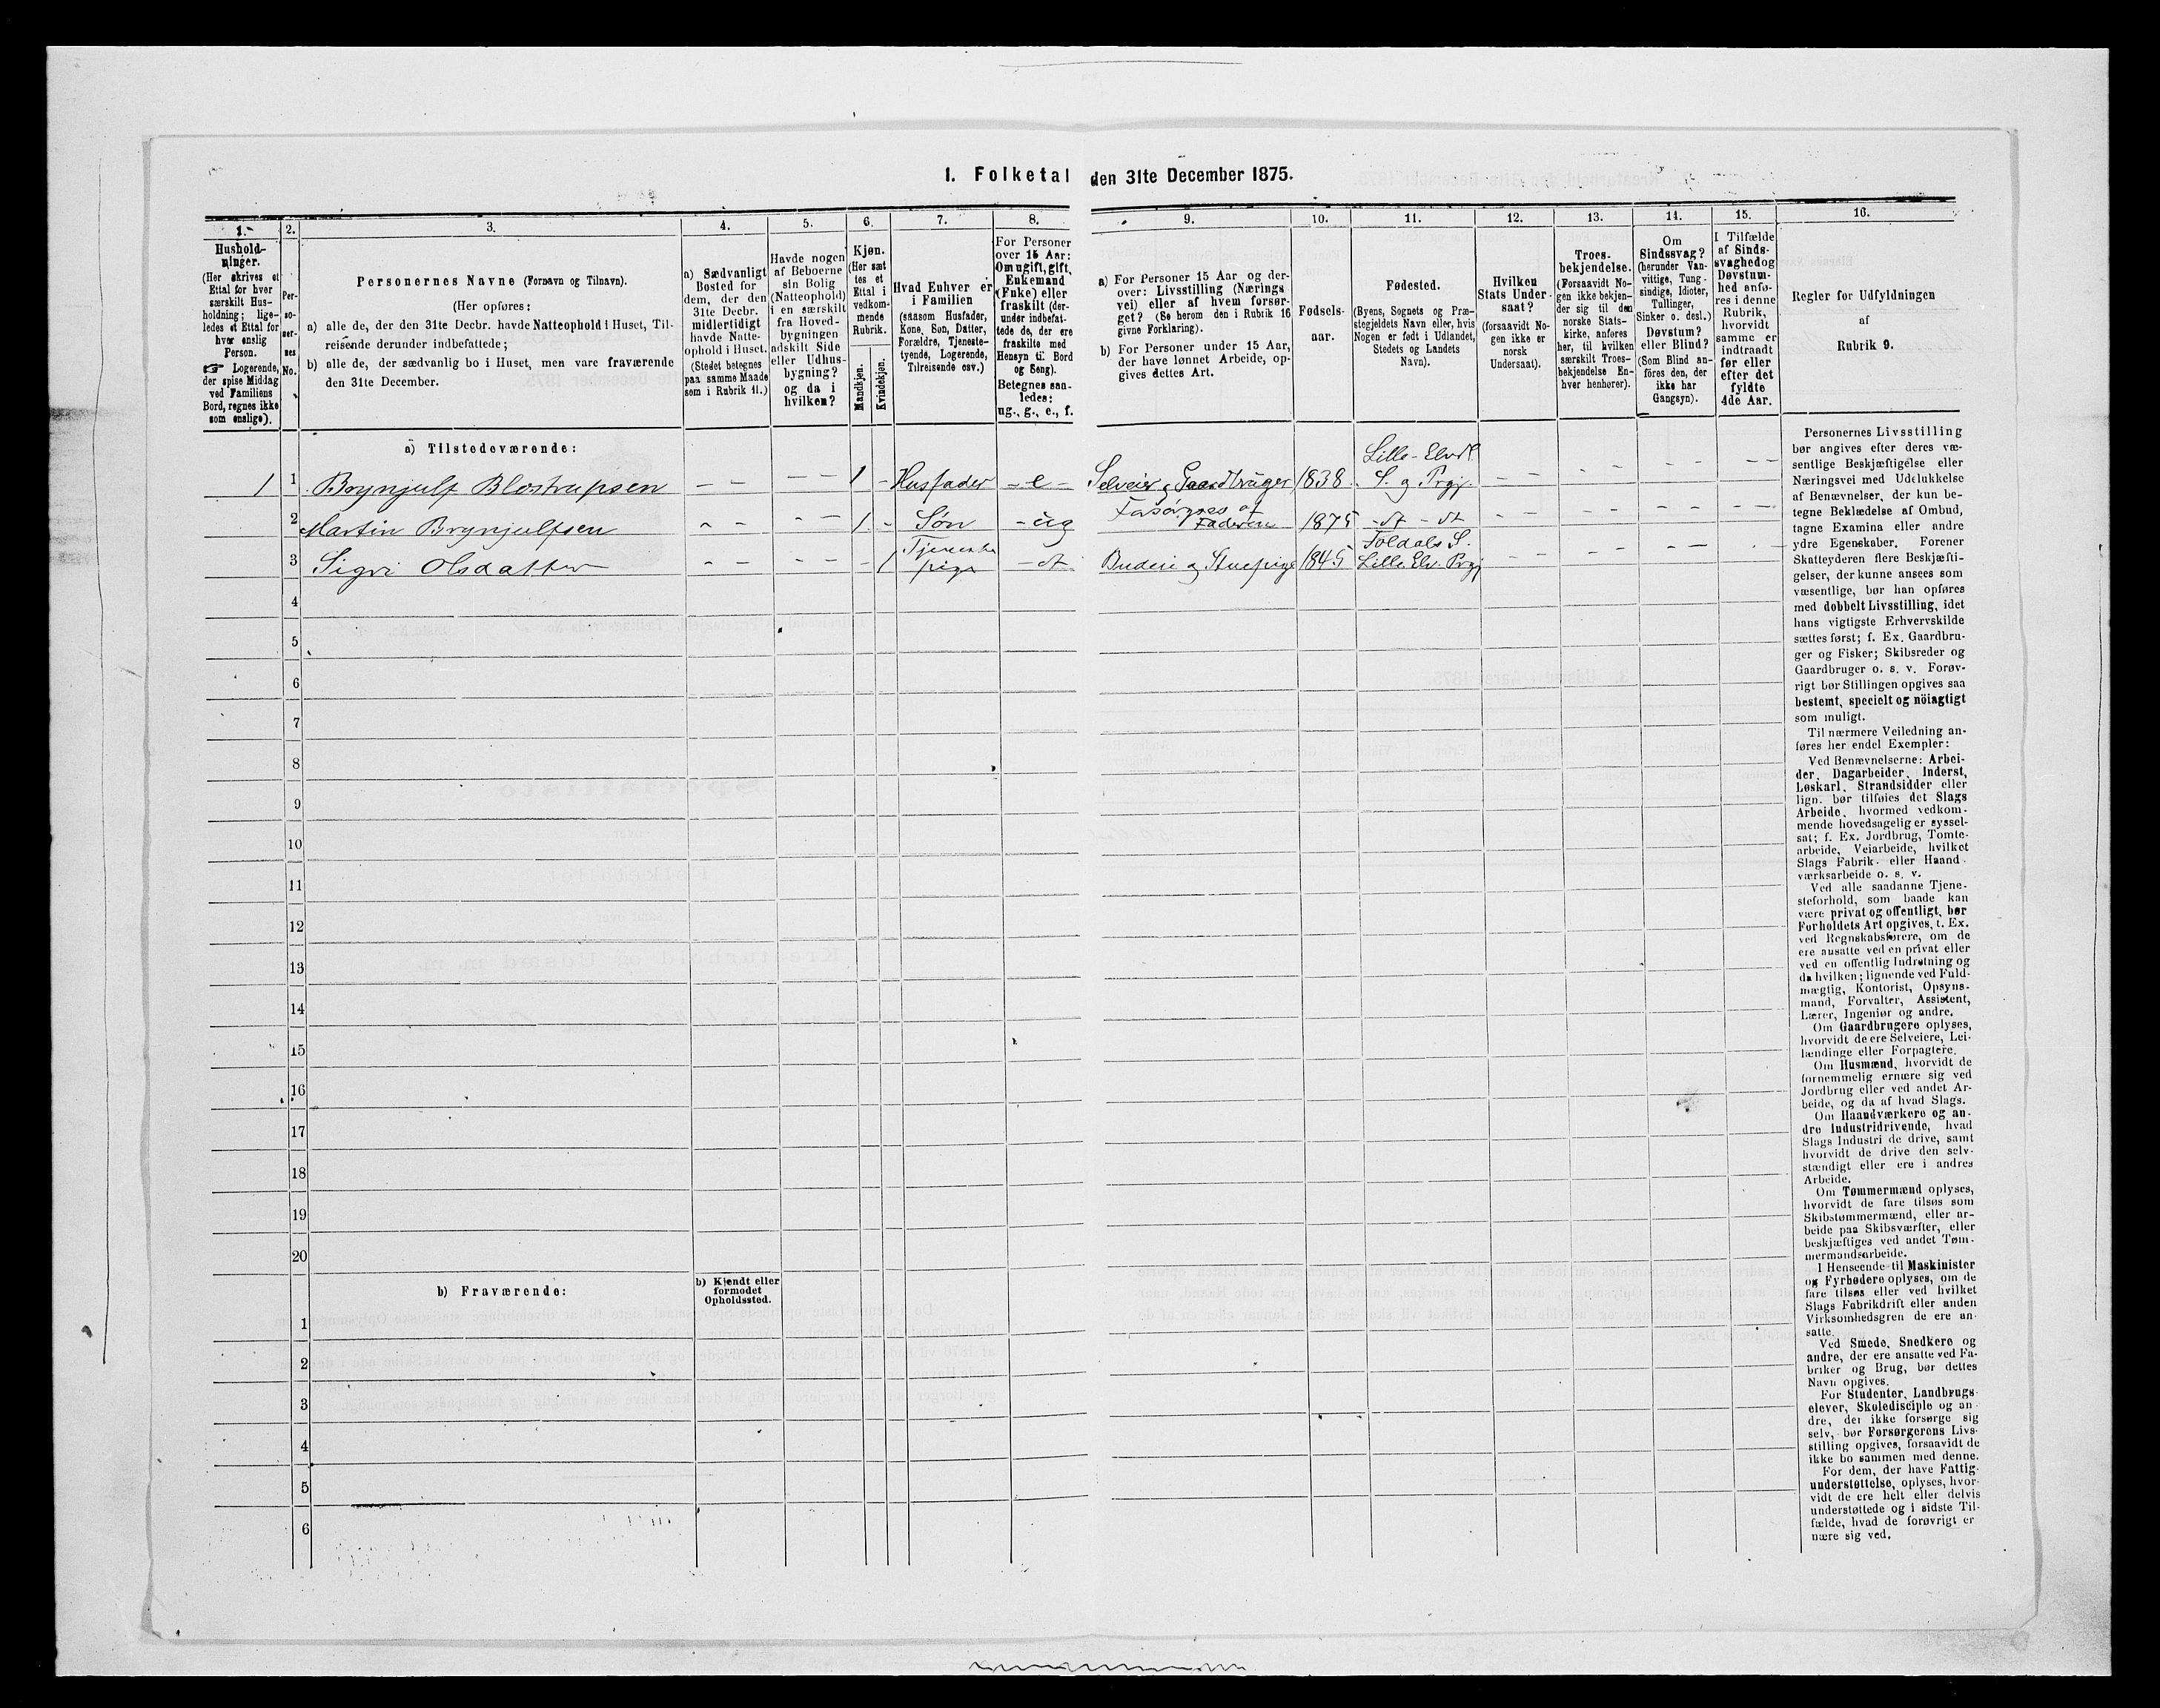 1. Folketal den 31te December 1875.
1.
2.
3.
4.
5.
6.
7.
8.
9.
10.
11.
12.
13.
14.
15.
16.
Hushold-
ninger.
(Her skrives et
Ettal for hver
særskilt Hus-
holdning; lige-
ledes et Ettal for
hver enslig
Person.
☞ Logerende,
der spise Middag
ved Familiens
Bord, regnes ikke
som enslige).
Per-
so-
ner-
nes
No.
Personernes Navne (Fornavn og Tilnavn).
(Her opføres:
a) alle de, der den 31te Decbr. havde Natteophold i Huset, Til-
reisende derunder indbefattede;
b) alle de, der sædvanlig bo i Huset, men vare fraværende
den 31te December.
a) Sædvanligt
Bosted for
dem, der den
31te Decbr.
midlertidigt
havde Natte-
ophold i Huset.
(Stedet betegnes
paa samme Maade
som i Rubrik 11.)
Havde nogen
af Beboerne
sin Bolig
(Natteophold)
i en særskilt
fra Hoved-
bygningen
adskilt Side
eller Udhus-
bygning?
og da i
hvilken?
Kjøn.
(Her sæt
tes et
Ettal i
vedkom-
mende
Rubrik.
Mandkjøn.
Kvindekjøn.
Hvad Enhver er
i Familien
(saasom Husfader,
Kone, Søn, Datter,
Forældre, Tjeneste-
tyende, Logerende,
Tilreisende osv.)
For Personer
over 15 Aar:
Om ugift, gift,
Enkemand
(Enke) eller
fraskilt (der-
under indbefat-
tede de, der ere
fraskilte med
Hensyn til Bord
og Seng).
Betegnes saa-
ledes:
ug., g., e., f.
a) For Personer 15 Aar og der-
over: Livsstilling (Nærings
vei) eller af hvem forsør-
get? (Se herom den i Rubrik 16
givne Forklaring).
b) For Personer under 15 Aar,
der have lønnet Arbeide, op-
gives dettes Art.
Fødsels-
aar.
Fødested.
(Byens, Sognets og Præ-
stegjeldets Navn eller, hvis
Nogen er født i Udlandet,
Stedets og Landets
Navn).
Hvilken
Stats Under-
saat?
(forsaavidt No-
gen ikke er
norsk
Undersaat).
Troes-
bekjendelse.
(Forsaavidt No-
gen ikke bekjen-
der sig til den
norske Stats-
kirke, anføres
her, til hvilken
særskilt Troes-
bekjendelse En-
hver henhører).
Om
Sindssvag?
(herunder Van-
vittige, Tung-
sindige, Idioter,
Tullinger,
Sinker o. desl.)
Døvstum?
eller Blind?
(Som Blind an-
föres den, der
ikke har
Gangsyn).
I Tilfælde
af Sinds-
svaghed og
Døvstum-
hed anfø-
res i denne
Rubrik,
hvorvidt
samme er
indtraadt
før eller
efter det
fyldte
4de Aar.
Regler før Udfyldningen
af
Rubrik 9.
a) Tilstedeværende:
1 1 Brynjulf Blostrupsen – – – – 1 - Husfader – e – Selveier & Gaardbruger 1838 Lille-Elvd. S. og Prgj. – – – – – – – –
2 Martin Brynjulfsen – – – – 1 - Søn – ug Forsørges af Faderen 1875 – dt – dt – – – – – – – –
3 Sigri Olsdatter – – – – – 1 Tjeneste pige – dt Budeie og Stuepige 1845 Foldals S. Lille Elv. Prgj – – – – – – – –
4
5
6
7
8
9
10
11
12
13
14
15
16
17
18
19
20
b) Fraværende:
b) Kjendt eller
formodet
Opholdssted.
1
2
3
4
5
6
Personernes Livsstilling
bør angives efter deres væ-
sentlige Beskjæftigelse eller
Næringsvei med Udelukkelse
af Benævnelser, der kun be-
tegne Beklædelse af Ombud,
tagne Examina eller andre
ydre Egenskaber. Forener
Skatteyderen flere Beskjæfti-
gelser, der kunne ansees som
væsentlige, bør han opføres
med dobbelt Livsstilling, idet
hans vigtigste Erhvervskilde
sættes først; f. Ex. Gaardbru-
ger og Fisker; Skibsreder og
Gaardbruger o. s. v. Forøv-
rigt bør Stillingen opgives saa
bestemt, specielt og nöiagtigt
som muligt.
Til nærmere Veiledning an-
føres her endel Exempler:
Ved Benævnelserne: Arbei-
der, Dagarbeider, Inderst,
Løskarl, Strandsidder eller
lign. bør tilføies det Slags
Arbeide, hvormed vedkom-
mende hovedsagelig er syssel-
sat; f. Ex. Jordbrug, Tomte-
arbeide, Veiarbeide, hvilket
Slags Fabrik- eller Haand-
værksarbeide o. s. v.
Ved alle saadanne Tjene-
steforhold, som baade kan
være privat og offentligt, bør
Forholdets Art opgives, t. Ex.
ved Regnskabsførere, om de
ere ansatte ved en privat eller
ved en offentlig Indretning og
da hvilken; lignende ved Fuld-
mægtig, Kontorist, Opsyns-
mand, Forvalter, Assistent,
Lærer, Ingeniør og andre.
Om Gaardbrugere oplyses,
hvorvidt de ere Selveiere, Lei-
lændinge eller Forpagtere.
Om Husmænd, hvorvidt de
fornemmelig ernære sig ved
Jordbrug eller ved andet Ar-
beide, og da af hvad Slags.
Om Haandværkere og an-
dre Industridrivende, hvad
Slags Industri de drive, samt
hvorvidt de drive den selv-
stændigt eller ere i andres
Arbeide.
Om Tømmermænd oplyses,
hvorvidt de fare tilsøs som
Skibstømmermænd, eller ar-
beide paa Skibsværfter, eller
beskjæftiges ved andet Tøm-
mermandsarbeide.
I Henseende til Maskinister
og Fyrbødere oplyses, om de
fare tilsøs eller ved hvilket
Slags Fabrikdrift eller anden
Virksomhedsgren de ere an-
satte.
Ved Smede, Snedkere og
andre, der ere ansatte ved Fa-
briker og Brug, bør dettes
Navn opgives.
For Studenter, Landbrugs-
elever, Skoledisciple og an-
dre, der ikke forsørge sig
selv, bør Forsørgerens Livs-
stilling opgives, forsaavidt de
ikke bo sammen med denne.
For dem, der have Fattig-
understøttelse, oplyses, hvor-
vidt de ere helt eller delvis
understøttede og i sidste Til-
fælde, hvad de forøvrigt er
nære sig ved.